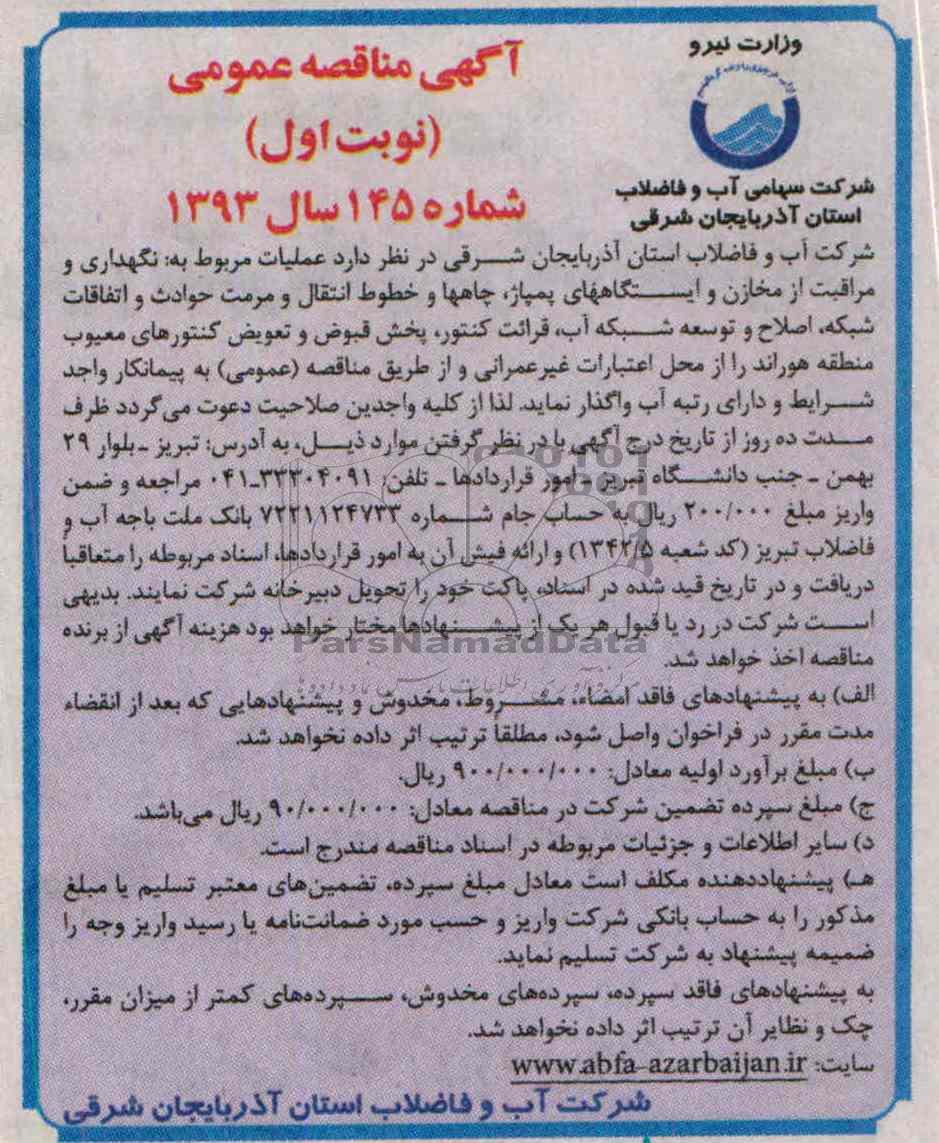 وزارت نیرو
شرکت سهامی آب و فاضلاب
استان آذربایجان شرقی
آگهی مناقصه عمومی
(نوبت اول)
شماره ۱۴۵ سال ۱۳۹۳
شرکت آب و فاضلاب استان آذربایجان شرقی در نظر دارد عملیات مربوط به: نگهداری و
مراقبت از مخازن و ایستگاههای پمپاژ، چاهها و خطوط انتقال و مرمت حوادث و اتفاقات
شبکه، اصلاح و توسعه شبکه آب، قرائت کنتور، پخش قبوض و تعویض کنتورهای معیوب
منطقه هوراند را از محل اعتبارات غیرعمرانی و از طریق مناقصه (عمومی) به پیمانکار واجد
شرایط و دارای رتبه آب واگذار نماید. لذا از کلیه واجدین صلاحیت دعوت می‌گردد ظرف
مدت ده روز از تاریخ درج آگهی با در نظر گرفتن موارد ذیل، به آدرس: تبریز ـ بلوار ۲۹
بهمن ـ جنب دانشگاه تبریز ـ امور قراردادها ـ تلفن: ۳۳۳۰۴۰۹۱ـ۰۴۱ مراجعه و ضمن
واریز مبلغ ۲۰۰/۰۰۰ ریال به حساب جام شماره ۷۲۲۱۱۲۴۷۳۳ بانک ملت باجه آب و
فاضلاب تبریز (کد شعبه ۱۳۴۲/۵) و ارائه فیش آن به امور قراردادها، اسناد مربوطه را متعاقباً
دریافت و در تاریخ قید شده در اسناد، پاکت خود را تحویل دبیرخانه شرکت نمایند. بدیهی
است شرکت در رد یا قبول هر یک از پیشنهادها مختار خواهد بود هزینه آگهی از برنده
ParsNamadData
مناقصه اخذ خواهد شد.
الف) به پیشنهادهای فاقد امضاء، مشروط، مخدوش و پیشنهادهایی که بعد از انقضاء
مدت مقرر در فراخوان واصل شود، مطلقاً ترتیب اثر داده نخواهد شد.
ب) مبلغ برآورد اولیه معادل: ۹۰۰/۰۰۰/۰۰۰ ریال.
ج) مبلغ سپرده تضمین شرکت در مناقصه معادل: ۹۰/۰۰۰/۰۰۰ ریال می‌باشد.
د) سایر اطلاعات و جزئیات مربوطه در اسناد مناقصه مندرج است.
هـ) پیشنهاددهنده مکلف است معادل مبلغ سپرده، تضمین‌های معتبر تسلیم یا مبلغ
مذکور را به حساب بانکی شرکت واریز و حسب مورد ضمانت‌نامه یا رسید واریز وجه را
ضمیمه پیشنهاد به شرکت تسلیم نماید.
به پیشنهادهای فاقد سپرده، سپرده‌های مخدوش، سپرده‌های کمتر از میزان مقرر،
چک و نظایر آن ترتیب اثر داده نخواهد شد.
سایت: www.abfa-azarbaijan.ir
شرکت آب و فاضلاب استان آذربایجان شرقی